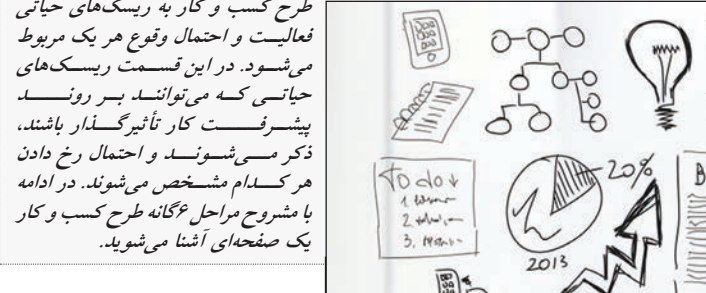 طرح کسب و کار به ریسک‌های حیاتی
فعالیت و احتمال وقوع هر یک مربوط
می‌شود. در این قسمت ریسک‌های
حیاتی که می‌توانند بر روند
پیشرفت کار تأثیرگذار باشند،
ذکر می‌شوند و احتمال رخ دادن
هر کدام مشخص می‌شوند. در ادامه
با مشروح مراحل ۶گانه طرح کسب و کار
یک صفحه‌ای آشنا می‌شوید.
To do
1.
2.
3.
20%
2013
B